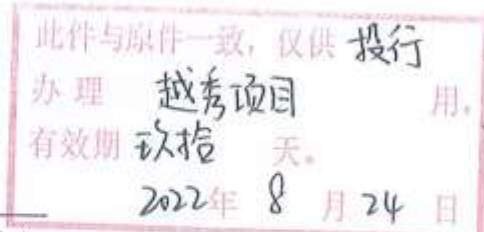 此件与原件一致，仅供 投行
办理 越秀项目 用，
有效期 玖拾 天。
2022年 8 月 24 日